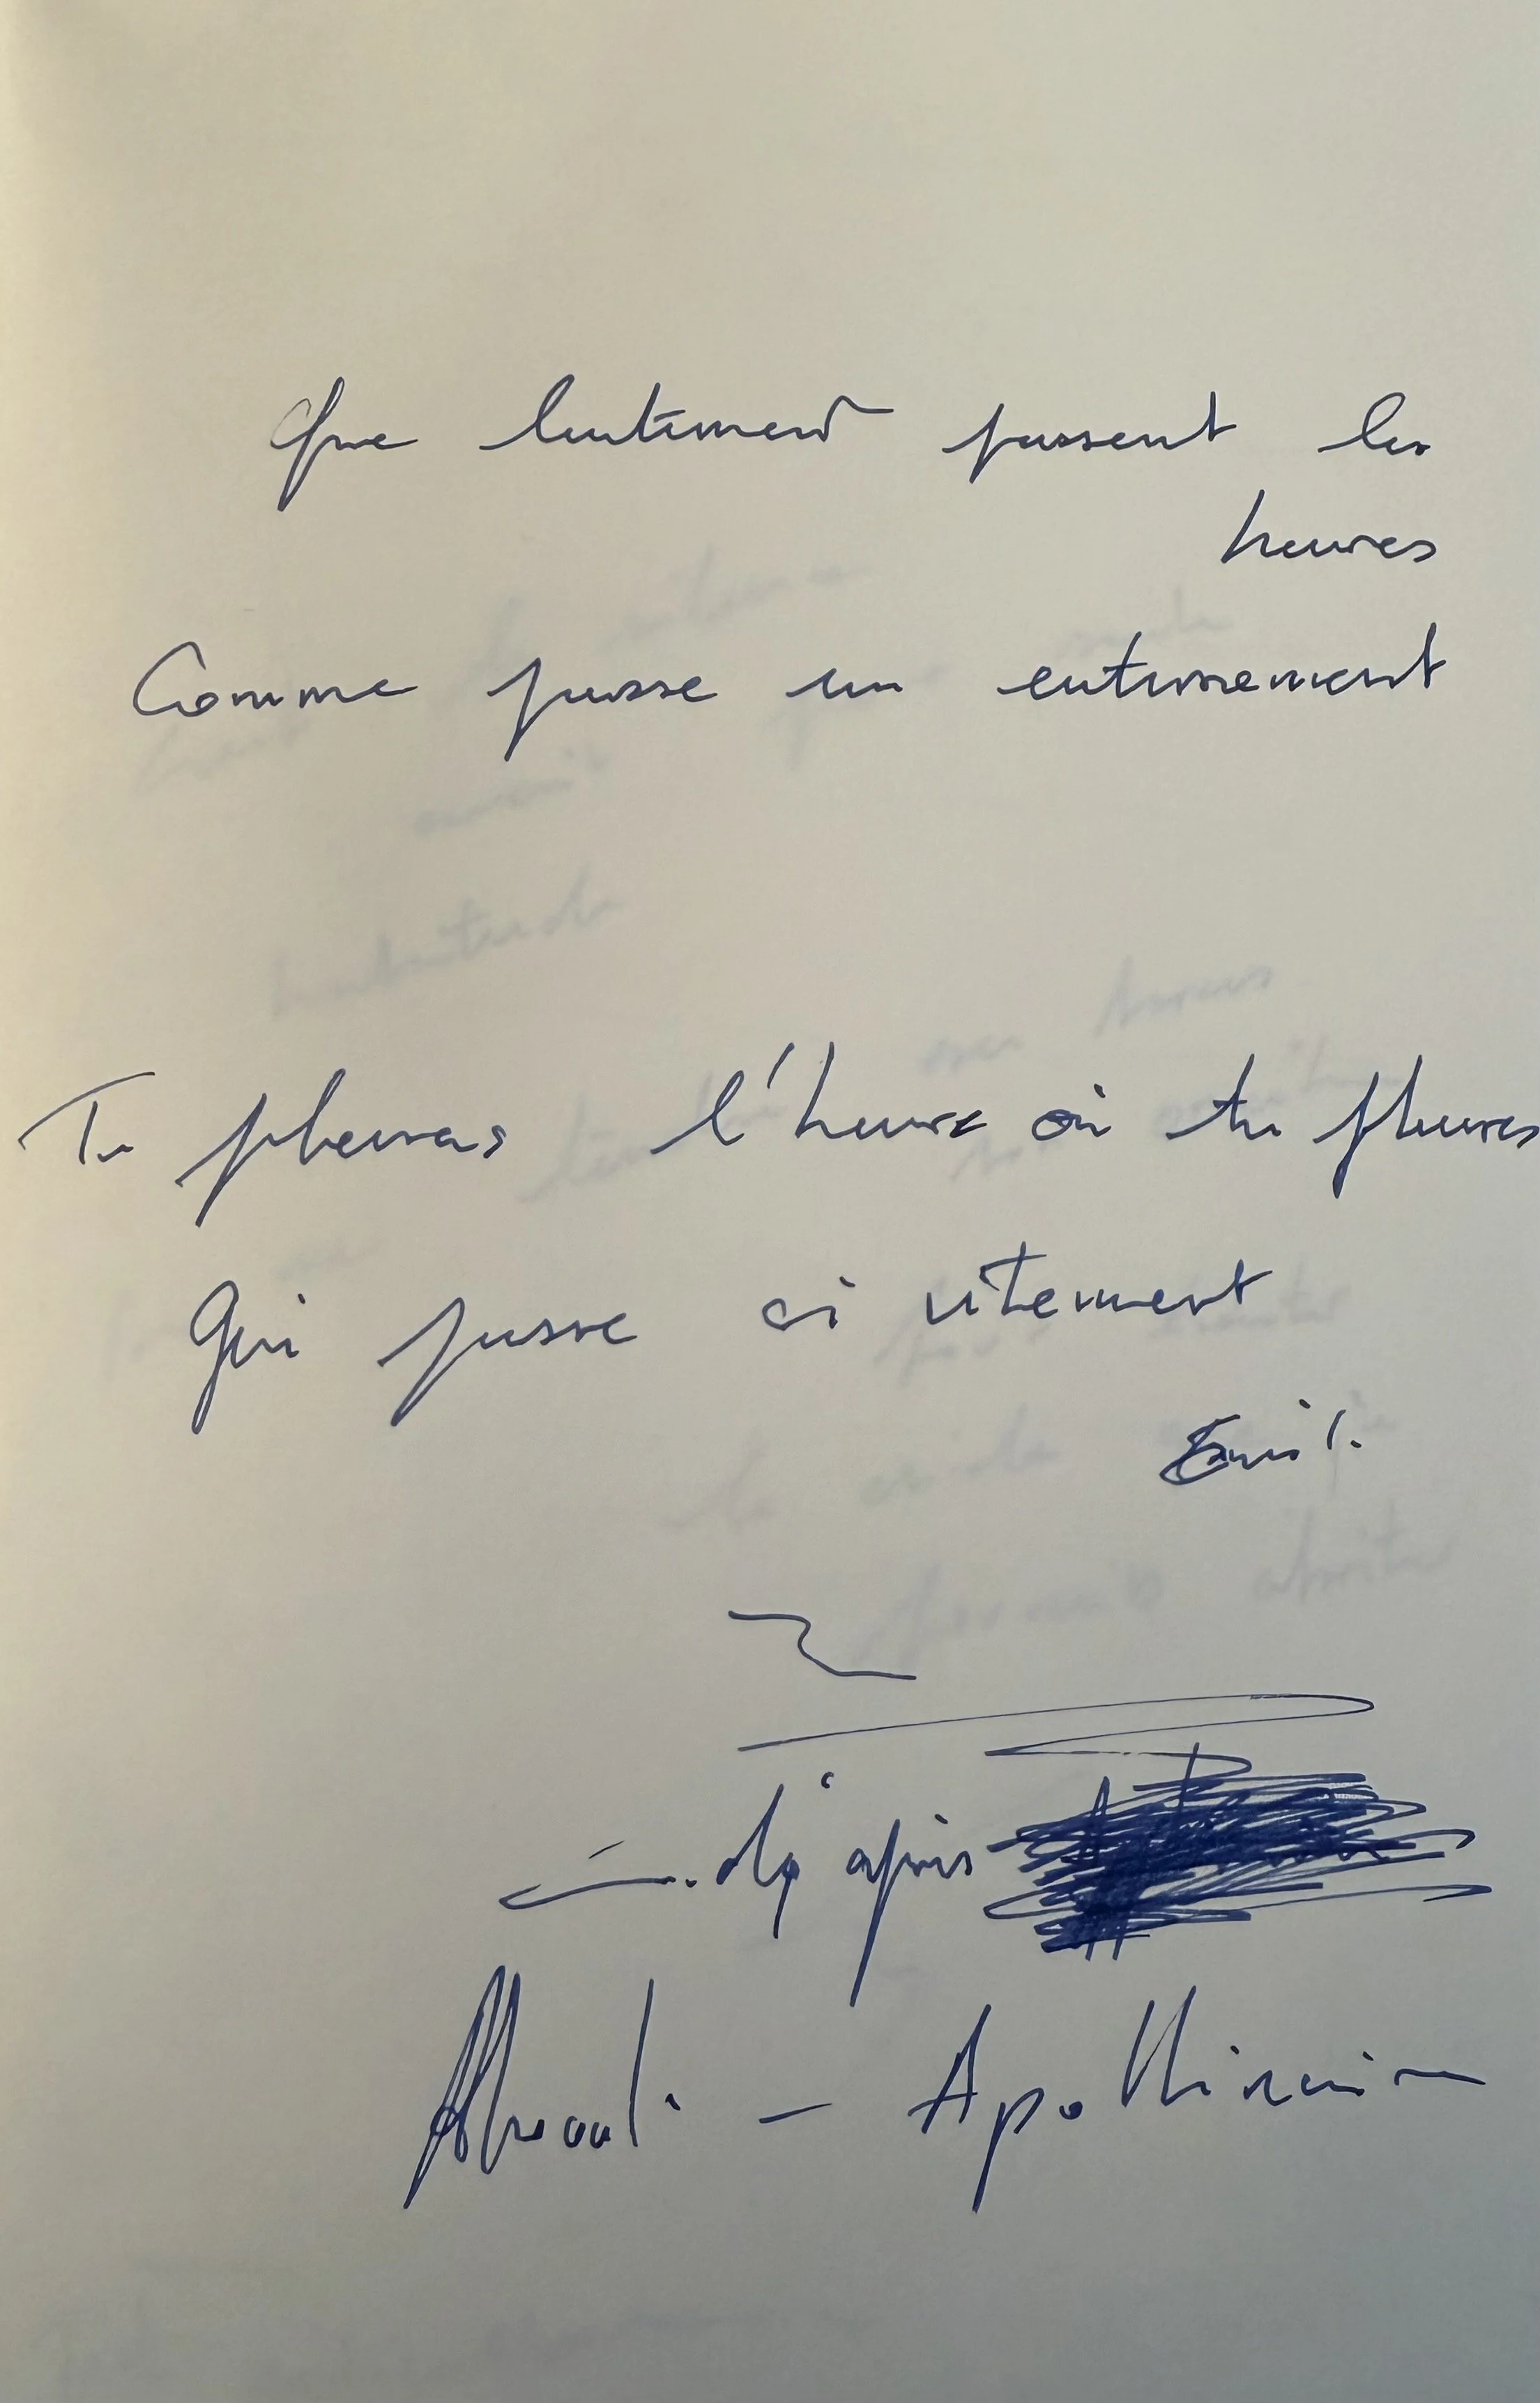 Que lentement passent les
heures
Comme passe un enterrement
Tu pleureras l'heure où tu pleures
Qui passe si vitement
... d'après
Alcools - Apollinaire